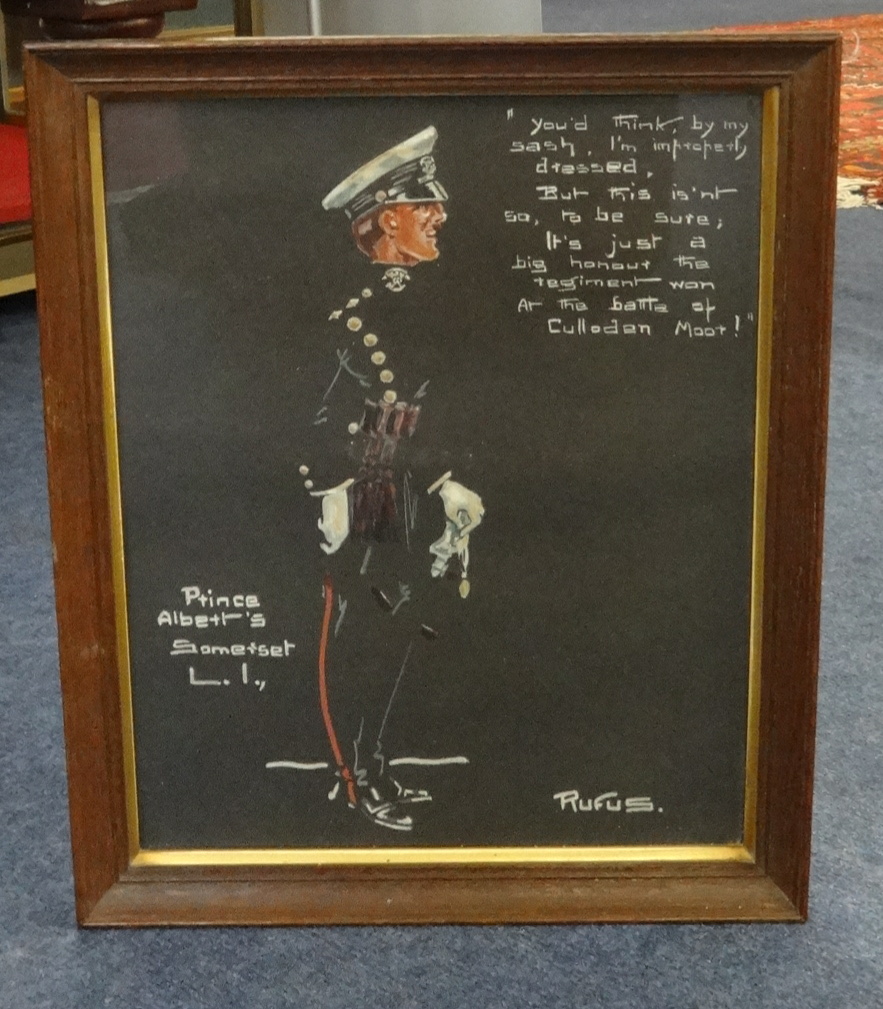 "You'd think, by my
sash, I'm improperly
dressed,
But this is'nt
so, to be sure;
It's just a
big honour the
regiment won
At the battle of
Culloden Moor!"
Prince
Albert's
Somerset
L.I.,
RUFUS.